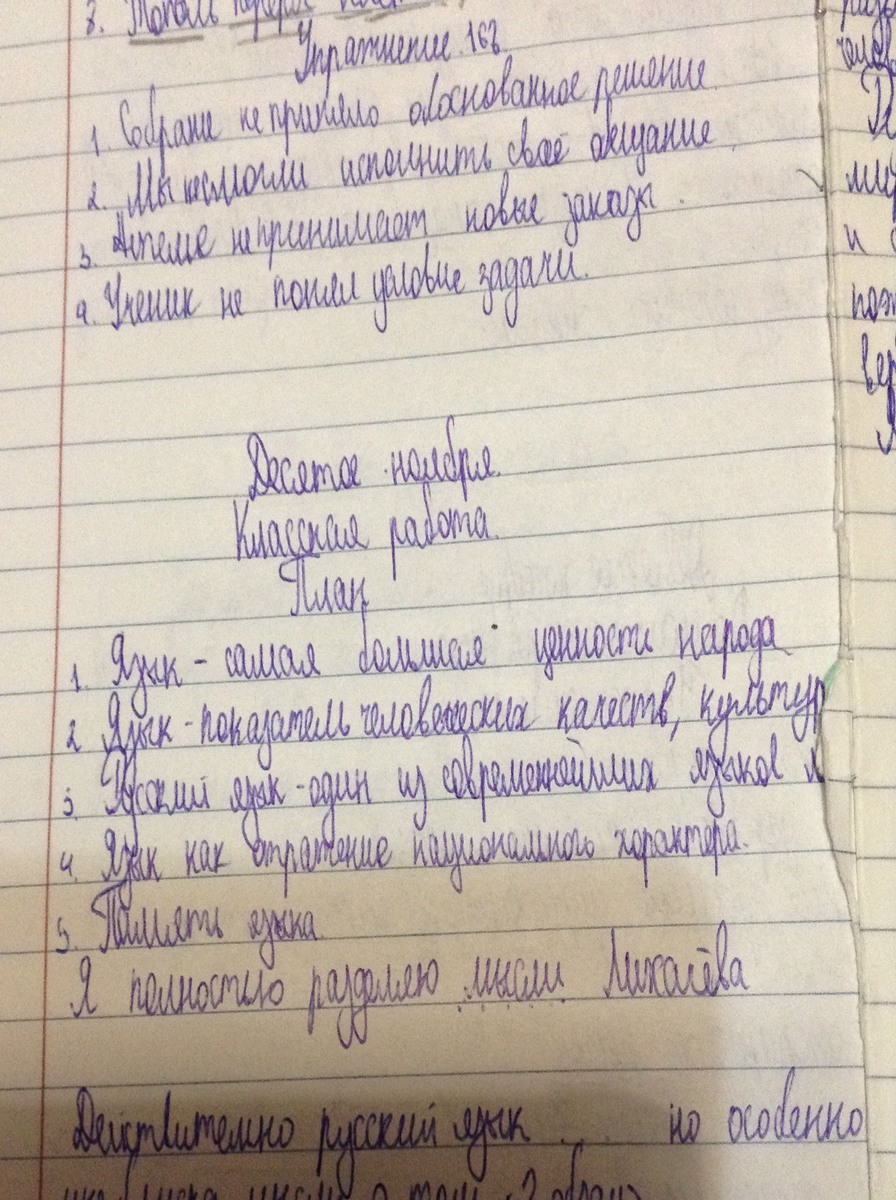 7. Тополь
Упражнение 168
1. Собрание не приняло обоснованное решение.
2. Мы не смогли исполнить своё обещание.
3. Ателье не принимает новые заказы.
4. Ученик не понял условие задачи.
Десятое ноября.
Классная работа.
План
1. Язык - самая большая ценность народа
2. Язык - показатель человеческих качеств, культур
3. Русский язык - один из современнейших языков
4. Язык как отражение национального характера.
5. Память языка.
Я полностью разделяю мысли Лихачёва
Действительно русский язык ... но особенно